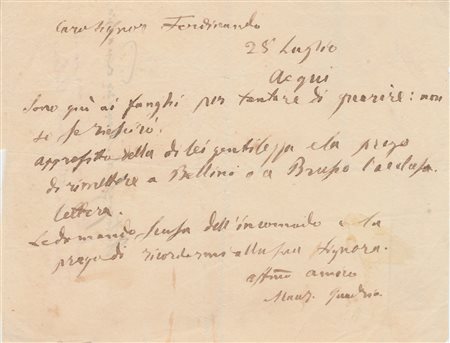 Caro Signor Ferdinando
28 Luglio
Acqui
Sono quì ai fanghi per tentare di guarire: non
so se riescirò.
Approfitto della di lei gentilezza e la prego
di rimettere a Bellino o a Brusco l'acclusa
lettera.
Le domando scusa dell'incomodo e la
prego di ricordarmi alla sua Signora.
affmo amico
Maur. Quadrio